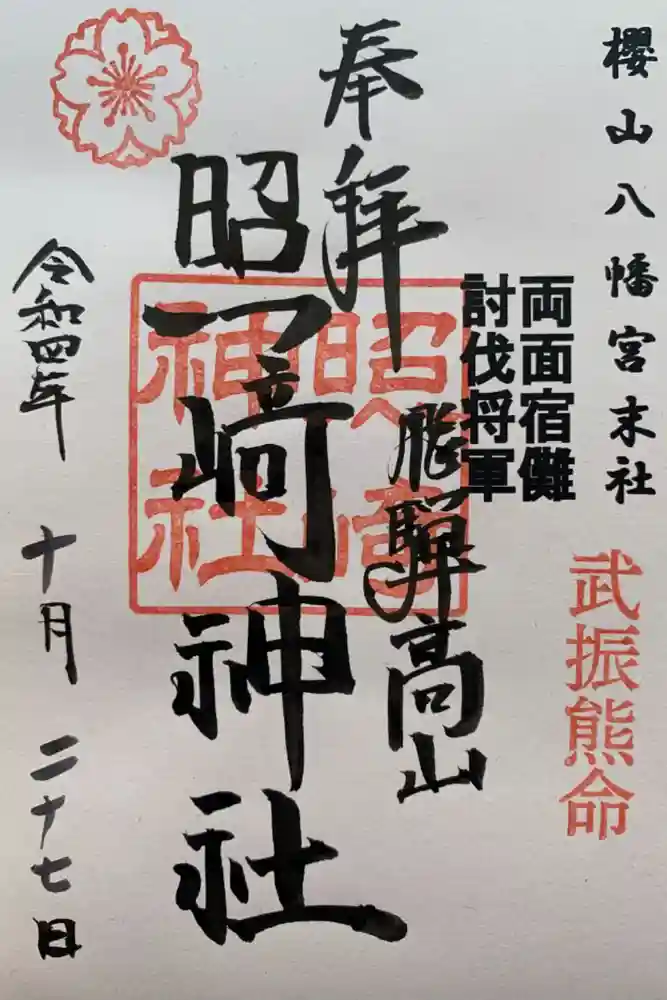 櫻山八幡宮末社
両面宿儺
討伐将軍
武振熊命
奉拝
飛驒高山
昭﨑神社
神社
令和四年
十月
二十七日